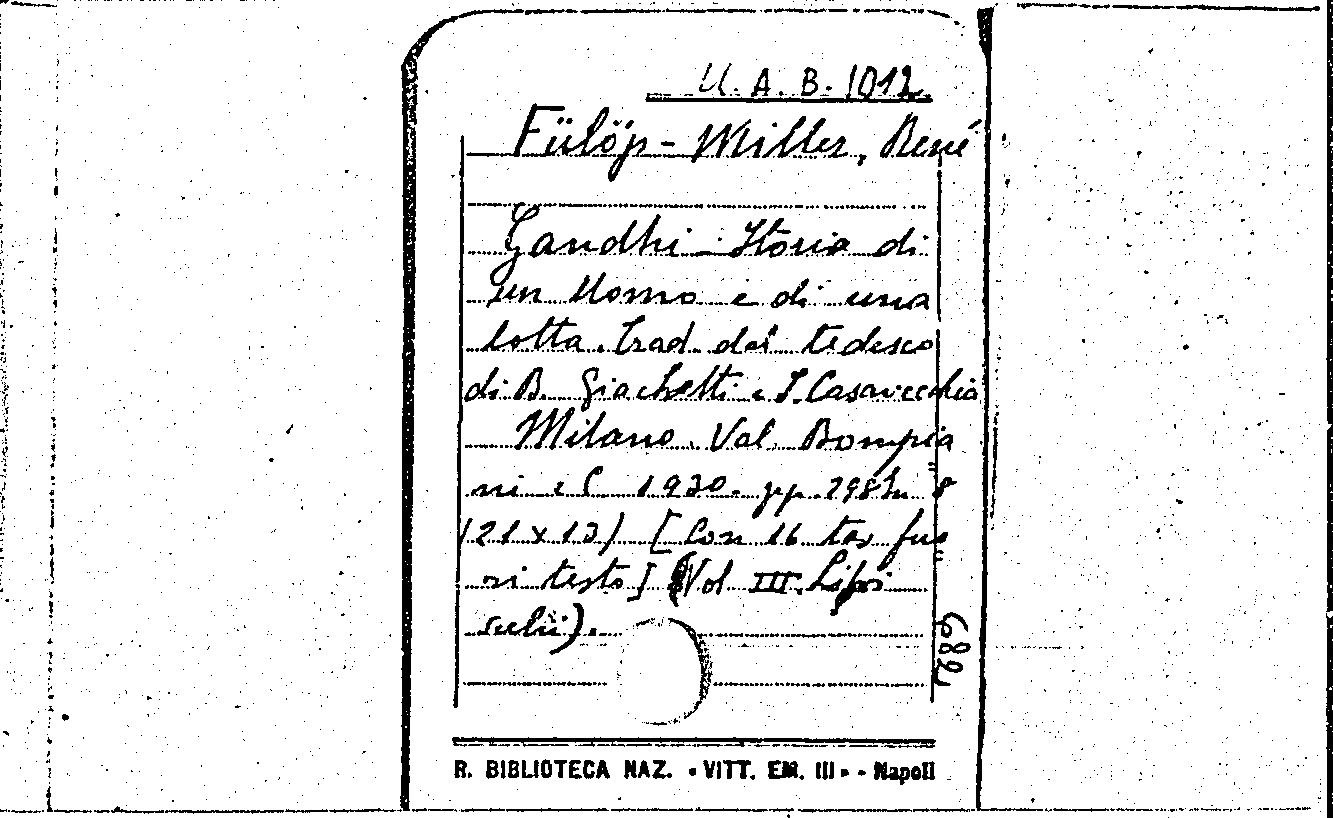 U. A. B. 1012.
Fülöp - Miller, René
Gandhi - Storia di
un Uomo e di una
lotta. Trad. dal tedesco
di B. Giachetti e I. Casavecchia
Milano. Val. Bompia
ni e C 1930. pp. 298 In 8°
(21 x 13) [Con 16 tav fuo
ri testo] (Vol III.
682
R. BIBLIOTECA NAZ. «VITT. EM. III» - Napoli